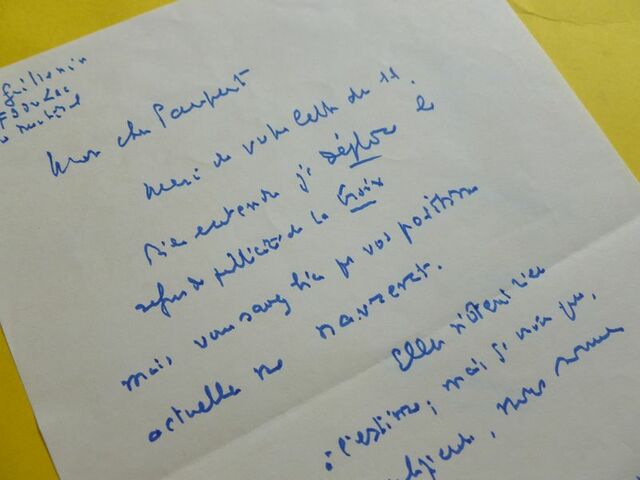 Guillemin
Mon cher Paupert
Merci de votre lettre du 11.
Bien entendu je déplore le
refus de publicité de la Croix
mais vous savez bien que vos positions
actuelles me navrent.
Elles n'ôtent rien
à l'estime ; mais je crois que,
, nous sommes